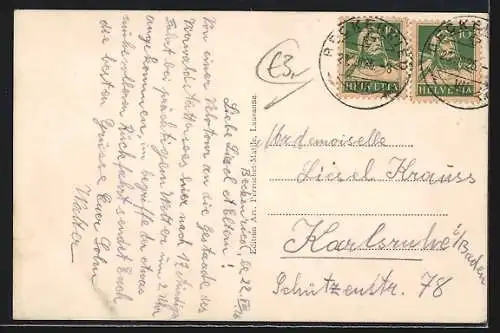 Beckenried, de 22.VII.26
Liebe Liesel & Eltern!
Von einer Motortour an die Gestade des
Vierwaldstättersees hier nach 12 stündiger
Fahrt bei prächtigem Wetter um 2 Uhr
angekommen, im Begriffe der etwas
Rückfahrt sendet Euch
die besten Grüsse Euer Sohn
Walter
Perrochet-Matile, Lausanne.
£3,-
BECKENRIED
10
HELVETIA
10
HELVETIA
Mademoiselle
Liesel Krauss
Karlsruhe i/Baden
Schützenstr. 78